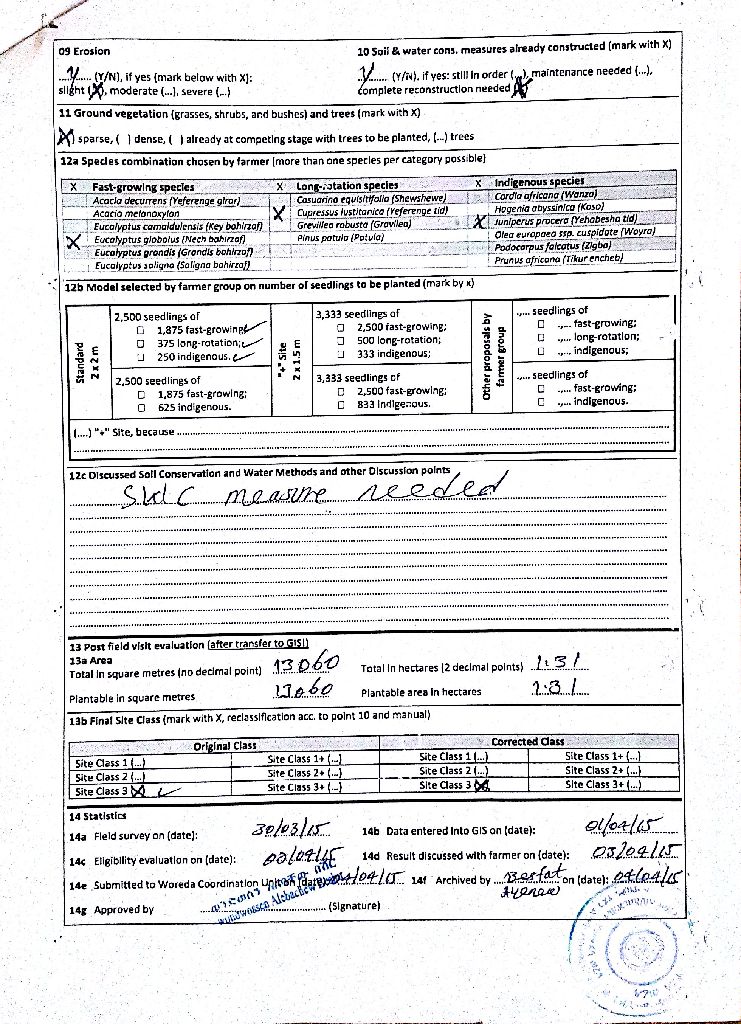 09 Erosion
10 Soil & water cons. measures already constructed (mark with X)
..Y.. (Y/N), if yes (mark below with X):
slight (X), moderate (...), severe (...)
..Y.. (Y/N), if yes: still in order (...), maintenance needed (...),
complete reconstruction needed (X)
11 Ground vegetation (grasses, shrubs, and bushes) and trees (mark with X)
(X) sparse, ( ) dense, ( ) already at competing stage with trees to be planted, (...) trees
12a Species combination chosen by farmer (more than one species per category possible)
X Fast-growing species X Long-rotation species X Indigenous species
Acacia decurrens (Yeferenge girar) Casuarina equisitifolia (Shewshewe) Cordia africana (Wanza)
Acacia melanoxylon X Cupressus lustitanica (Yeferenge tid) Hagenia abyssinica (Koso)
Eucalyptus camaldulensis (Key bahirzaf) Grevillea robusta (Gravilea) X Juniperus procera (Yehabesha tid)
X Eucalyptus globolus (Nech bahirzaf) Pinus patula (Patula) Olea europaea ssp. cuspidate (Woyra)
Eucalyptus grandis (Grandis bahirzaf) Podocarpus falcatus (Zigba)
Eucalyptus saligna (Saligna bahirzaf) Prunus africana (Tikur encheb)
12b Model selected by farmer group on number of seedlings to be planted (mark by x)
Standard
2 x 2 m
2,500 seedlings of
☐ 1,875 fast-growing; ✓
☐ 375 long-rotation; ✓
☐ 250 indigenous. ✓
2,500 seedlings of
☐ 1,875 fast-growing;
☐ 625 indigenous.
"+" Site
2 x 1.5 m
3,333 seedlings of
☐ 2,500 fast-growing;
☐ 500 long-rotation;
☐ 333 indigenous;
3,333 seedlings of
☐ 2,500 fast-growing;
☐ 833 indigenous.
Other proposals by
farmer group
.,... seedlings of
☐ .,... fast-growing;
☐ .,... long-rotation;
☐ .,... indigenous;
.,... seedlings of
☐ .,... fast-growing;
☐ .,... indigenous.
(....) "+" Site, because
12c Discussed Soil Conservation and Water Methods and other Discussion points
SWC measure needed
13 Post field visit evaluation (after transfer to GIS!)
13a Area
Total in square metres (no decimal point) 13060 Total in hectares (2 decimal points) 1.31
Plantable in square metres 13060 Plantable area in hectares 1.31
13b Final Site Class (mark with X, reclassification acc. to point 10 and manual)
Original Class Corrected Class
Site Class 1 (...) Site Class 1+ (...) Site Class 1 (...) Site Class 1+ (...)
Site Class 2 (...) Site Class 2+ (...) Site Class 2 (...) Site Class 2+ (...)
Site Class 3 (X) ✓ Site Class 3+ (...) Site Class 3 (X) Site Class 3+ (...)
14 Statistics
14a Field survey on (date): 30/03/15 14b Data entered into GIS on (date): 01/04/15
14c Eligibility evaluation on (date): 14d Result discussed with farmer on (date): 03/04/15
14e Submitted to Woreda Coordination Unit on (date): 14f Archived by on (date): 04/04/15
14g Approved by (Signature)